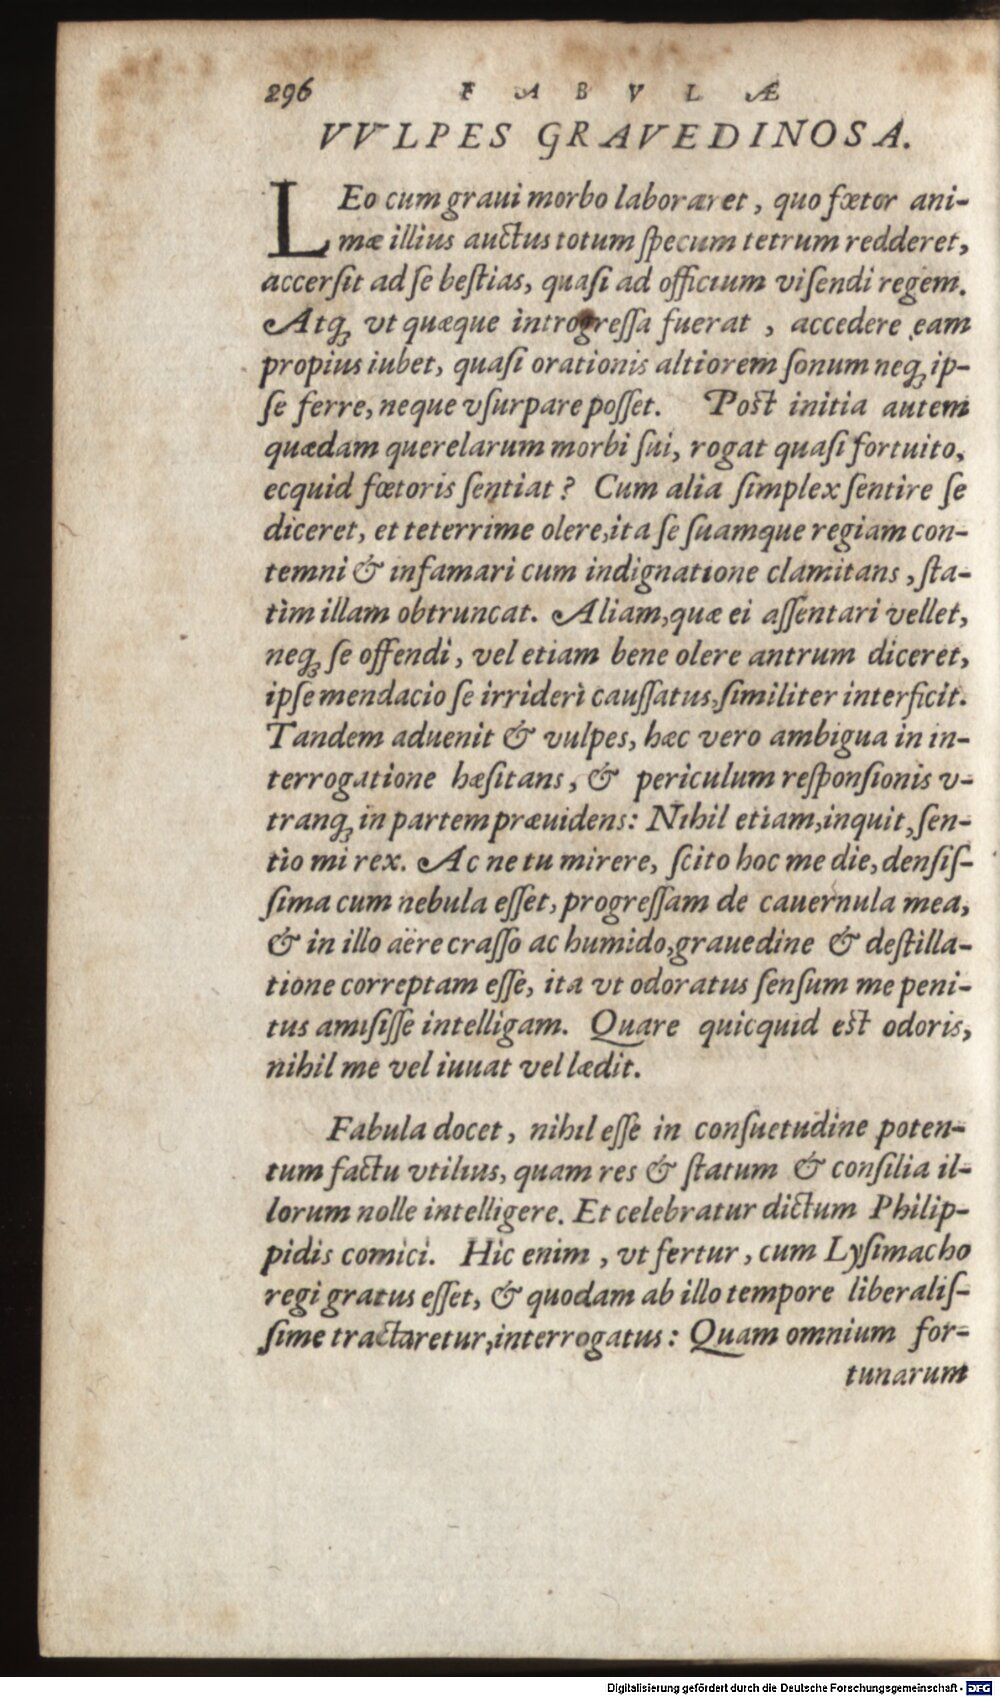 296 FABVLÆ
VVLPES GRAVEDINOSA.
LEo cum graui morbo laboraret, quo fœtor ani-
mæ illius auctus totum specum tetrum redderet,
accersit ad se bestias, quasi ad officium visendi regem.
Atq; vt quæque introgressa fuerat, accedere eam
propius iubet, quasi orationis altiorem sonum neq; ip-
se ferre, neque vsurpare posset. Post initia autem
quædam querelarum morbi sui, rogat quasi fortuito,
ecquid fœtoris sentiat? Cum alia simplex sentire se
diceret, et teterrime olere, ita se suamque regiam con-
temni & infamari cum indignatione clamitans, sta-
tim illam obtruncat. Aliam, quæ ei assentari vellet,
neq; se offendi, vel etiam bene olere antrum diceret,
ipse mendacio se irrideri caussatus, similiter interficit.
Tandem aduenit & vulpes, hæc vero ambigua in in-
terrogatione hæsitans, & periculum responsionis v-
tranq; in partem præuidens: Nihil etiam, inquit, sen-
tio mi rex. Ac ne tu mirere, scito hoc me die, densis-
sima cum nebula esset, progressam de cauernula mea,
& in illo aëre crasso ac humido, grauedine & destilla-
tione correptam esse, ita vt odoratus sensum me peni-
tus amisisse intelligam. Quare quicquid est odoris,
nihil me vel iuuat vel lædit.
Fabula docet, nihil esse in consuetudine poten-
tum factu vtilius, quam res & statum & consilia il-
lorum nolle intelligere. Et celebratur dictum Philip-
pidis comici. Hic enim, vt fertur, cum Lysimacho
regi gratus esset, & quodam ab illo tempore liberalis-
sime tractaretur, interrogatus: Quam omnium for-
tunarum
Digitalisierung gefördert durch die Deutsche Forschungsgemeinschaft - DFG